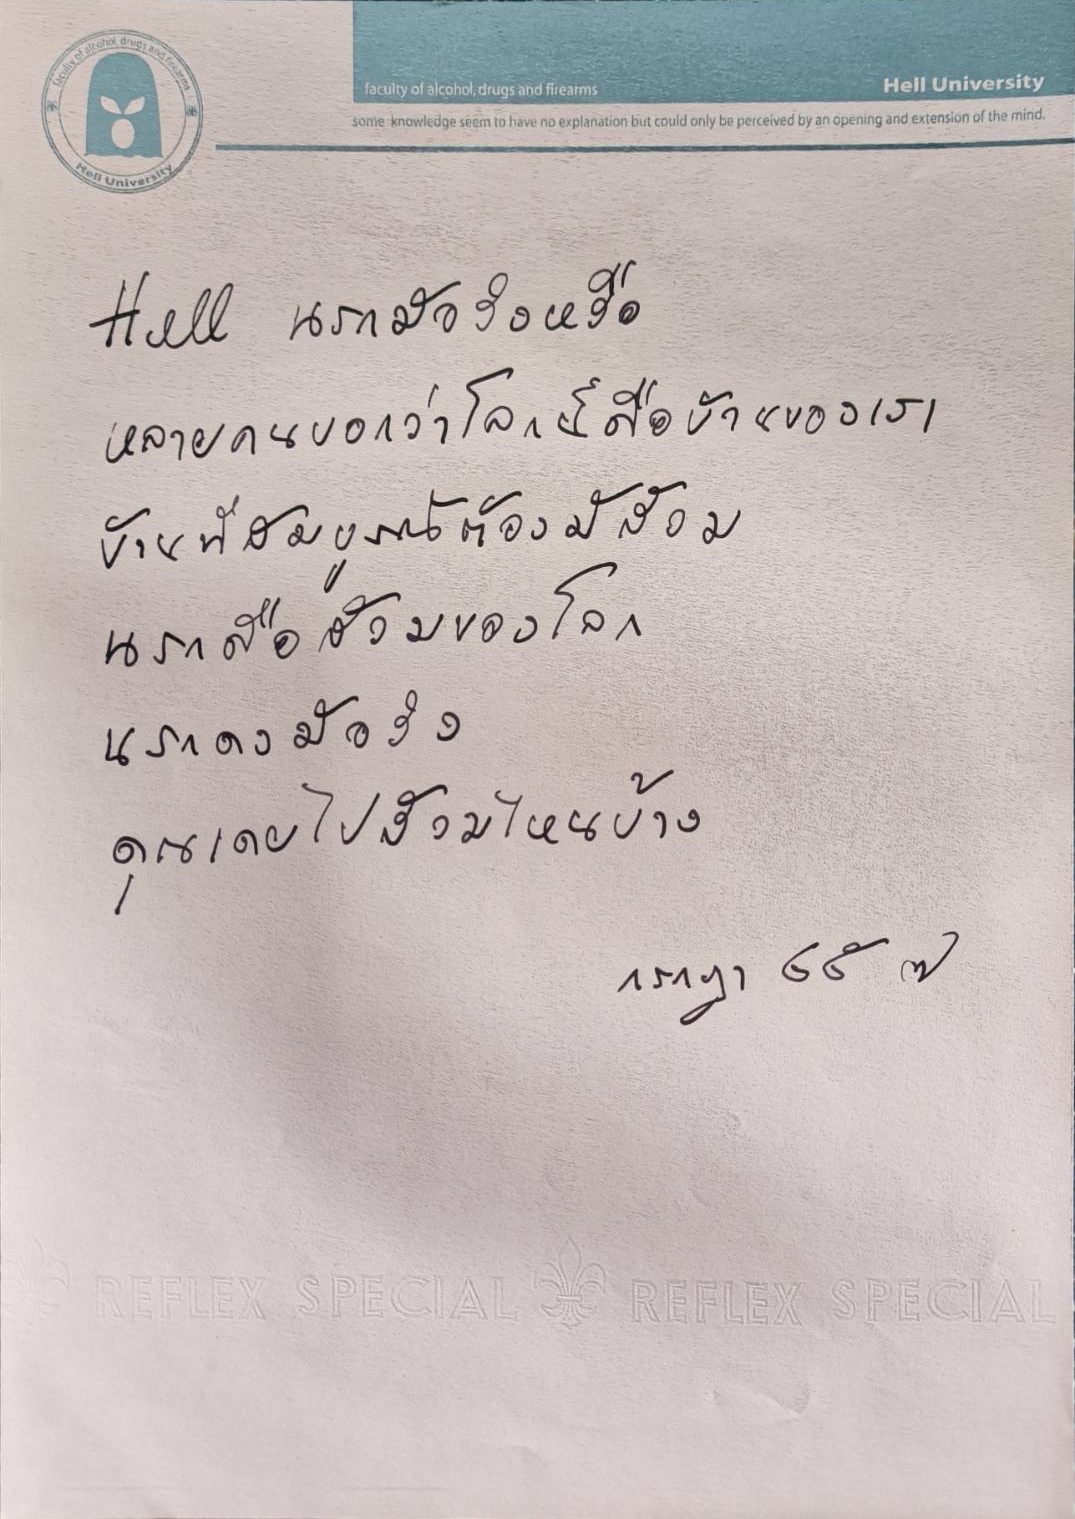 faculty of alcohol, drugs and firearms
Hell University
faculty of alcohol, drugs and firearms
Hell University
some knowledge seem to have no explanation but could only be perceived by an opening and extension of the mind.
Hell นรกมีจริงหรือ
หลายคนบอกว่าโลกนี้คือบ้านของเรา
บ้านที่สมบูรณ์ต้องมีส้วม
นรกคือส้วมของโลก
นรกคงมีจริง
คุณเคยไปส้วมไหนบ้าง
กรกฎา ๖๕
REFLEX SPECIAL REFLEX SPECIAL